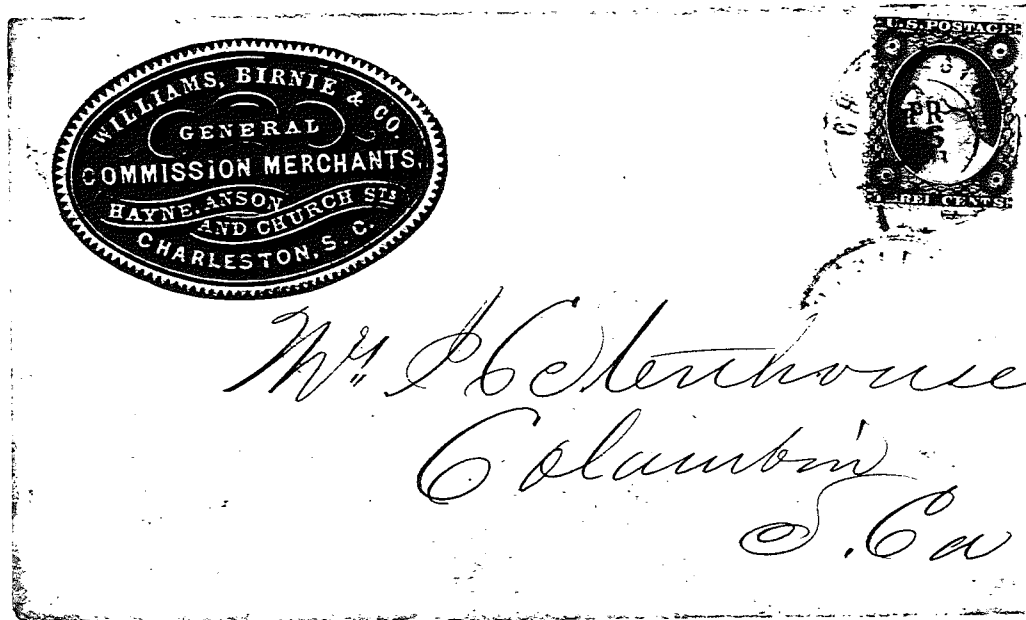 WILLIAMS, BIRNIE & CO.
GENERAL
COMMISSION MERCHANTS,
HAYNE, ANSON
AND CHURCH STS
CHARLESTON, S. C.
U.S. POSTAGE
PR
5
REE CENTS
Stenhouse
Columbia
S. Ca